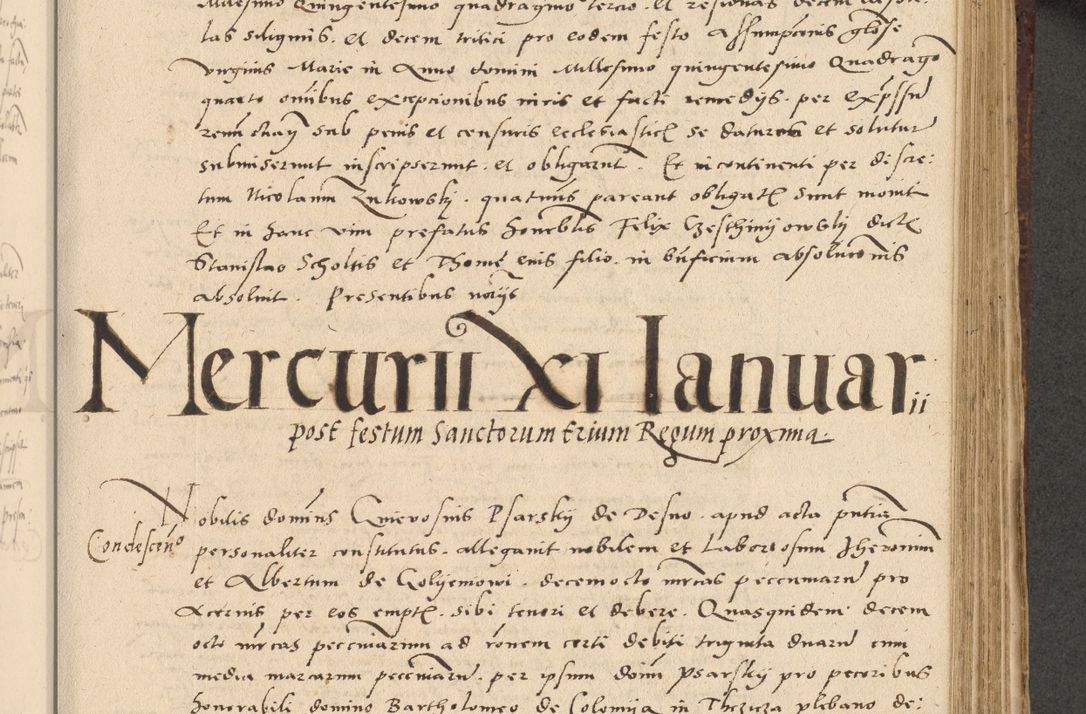 Millesimo Quingentesimo quadragmo tercio. Et residuas decem
las siliginis. et decem tritici pro eodem festo Assumpcionis glose
virginis Marie in Anno domini Millesimo quingentesimo Quadrago
quarto omibus excepcionibus iuris et facti remedys. per expssu
sub penis et censuris ecclesiastic se daturos et soluturu
submiserunt inscripserunt. et obligarut. Et in continenti per discre:
tum Nicolaum Zukowsky. quatinus pareant obligat sunt moniti
Et in hanc vim prefatus honorblis Felix dicti
Stanislao Scholtis et Thome eius filio. in bnficium absolucionis
absoluit. Presentibus notarys
Mercurii XI Ianuarii
post festum Sanctorum trium Regum proxima.
Nobilis dominus Gnievosius Psarsky de Desno. apud acta pntia
Condescen°
personaliter constitutus. allegauit nobilem et Laboriosum Jheronim
et Albertum de Golyemowi. decemocto mrcas peccuniaru pro
Acernis per eos empt. sibi teneri et debere. Quasquidem decem
octo mrcas peccuniarum ad ronem certi debiti triginta duaru cum
media marcarum peccuniaru. per ipsum domi Psarsky pro pecoribus
honorabili domino Bartholomeo de Colomija in Thczicza plebano de: